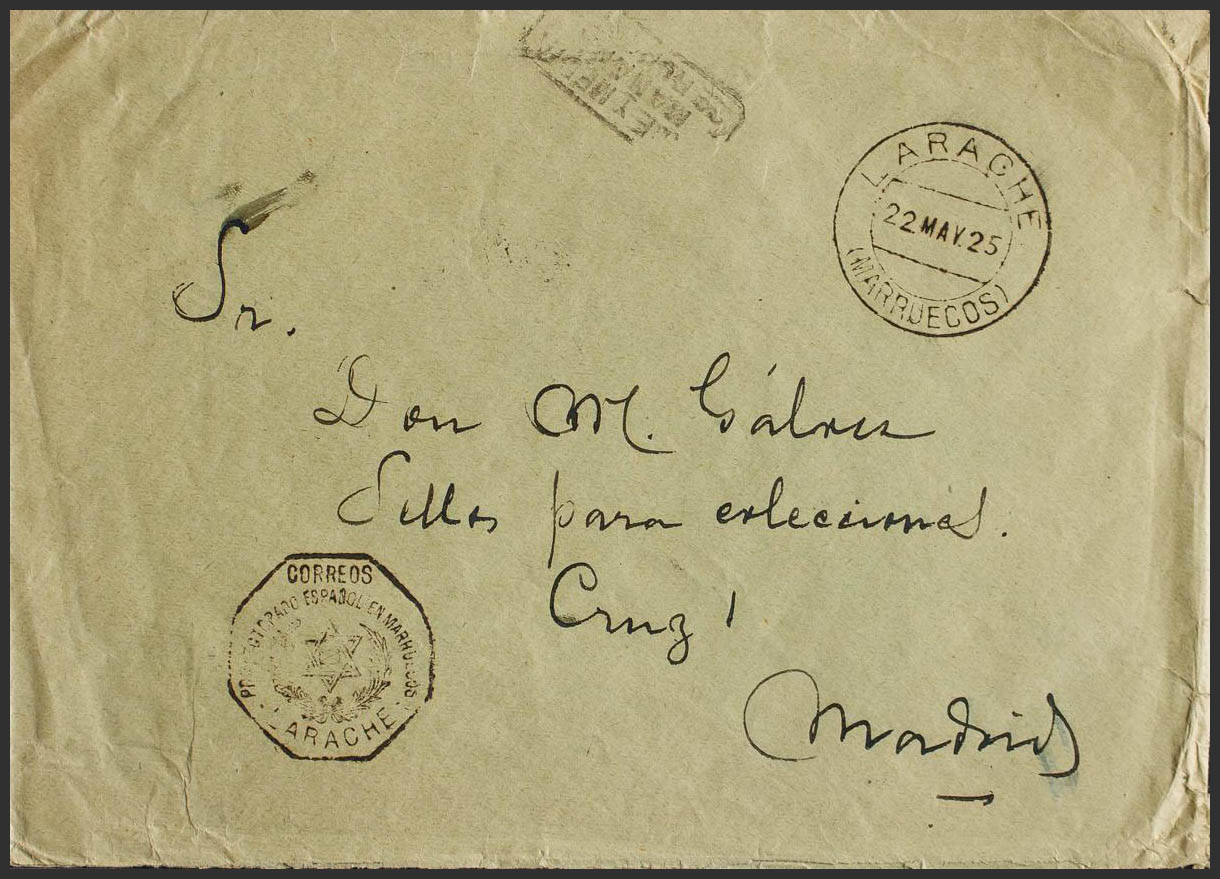 LARACHE
22 MAY. 25
(MARRUECOS)
Sr.
Don M. Gálvez
Sellos para colecciones.
Cruz 1
Madrid
CORREOS
PROTECTORADO ESPAÑOL EN MARRUECOS
LARACHE